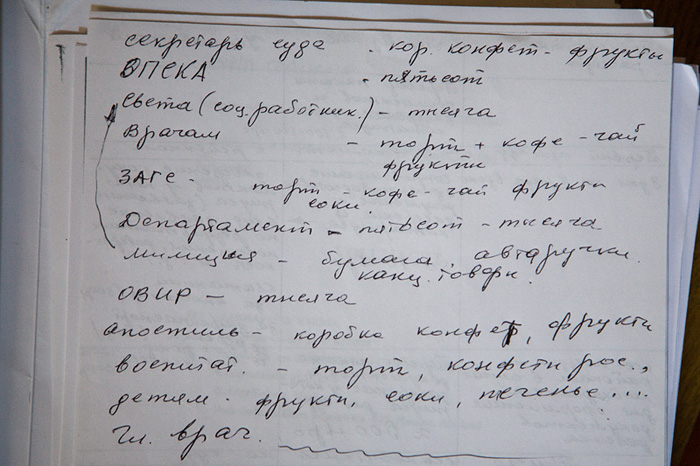 секретарь суда - кор. конфет - фрукты
ОПЕКА - пятьсот
Света (соц. работник.) - тысяча
Врачам - торт + кофе - чай
фрукты
ЗАГС - торт - кофе - чай фрукты
соки.
Департамент - пятьсот - тысяча
милиция - бумага, авторучки.
канц. товары.
ОВИР - тысяча
апостиль - коробка конфет, фрукты
воспитат. - торт, конфеты рос.,
детям - фрукты, соки, печенье, ...
Гл. врач.